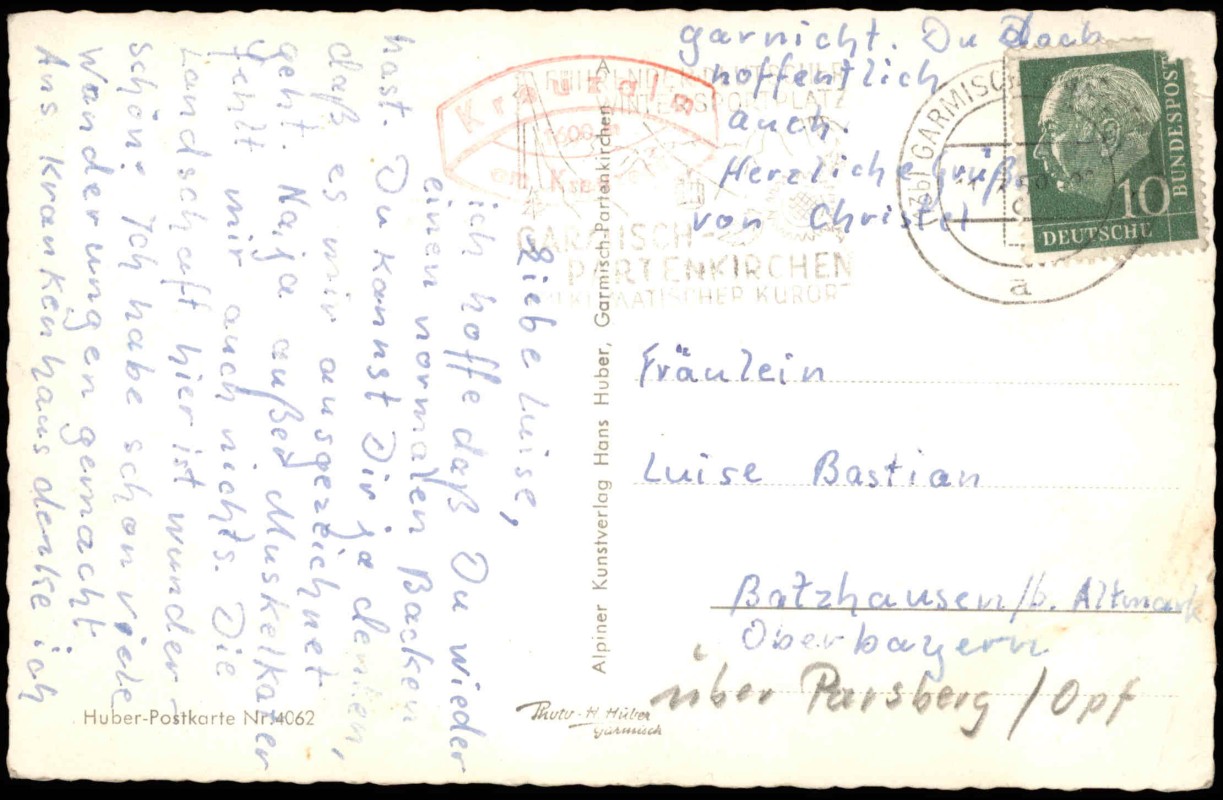 Liebe Luise,
ich hoffe daß Du wieder
einen normalen Backen
hast. Du kannst Dir ja denken,
daß es mir ausgezeichnet
geht. Naja außed Muskelkater
fehlt mir auch nichts. Die
Landschaft hier ist wunder-
schön. Ich habe schon viele
Wanderungen gemacht
Ans Krankenhaus denke ich
garnicht. Du doch
hoffentlich
auch.
Herzliche Grüße
von Christel
Fräulein
Luise Bastian
Batzhausen/b. Altmark
Oberbayern
über Parsberg / Opf
Alpiner Kunstverlag Hans Huber, Garmisch-Partenkirchen
Huber-Postkarte Nr. 4062
Photo-H. Huber
Garmisch
Kreuzalm
1600 m
am Kreuzeck
FÜHRENDER DEUTSCHER
WINTERSPORTPLATZ
GARMISCH-
PARTENKIRCHEN
HEILKLIMATISCHER KURORT
(13b) GARMISCH
a
10
DEUTSCHE
BUNDESPOST